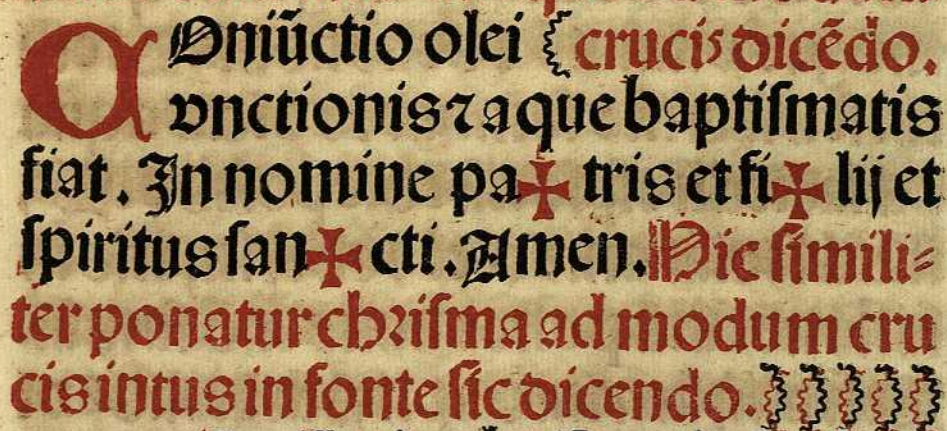 COniūctio olei crucis dicēdo.
vnctionis ⁊ aque baptiſmatis
fiat. In nomine pa✠ tris et fi✠ lij et
ſpiritus ſan✠ cti. Amen. Hic ſimili⸗
ter ponatur chꝛiſma ad modum cru
cis intus in fonte ſic dicendo.